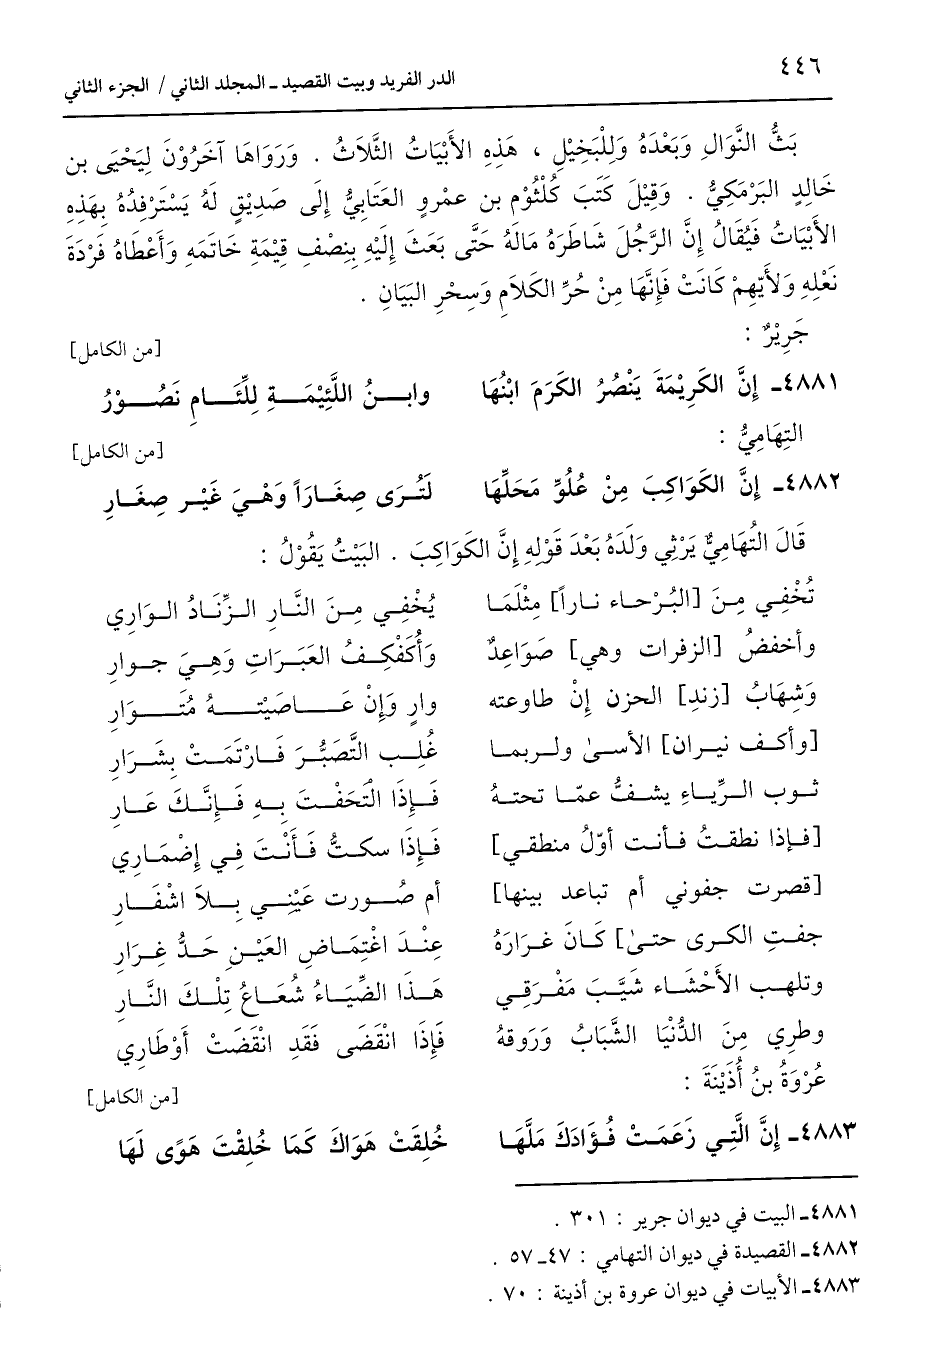 ٤٤٦
الدر الفريد وبيت القصيد ـ المجلد الثاني / الجزء الثاني
بَثُّ النَّوَالِ وَبَعْدَهُ وَلِلْبَخِيْلِ ، هَذِهِ الأَبْيَاتُ الثَّلَاثُ . وَرَوَاهَا آخَرُوْنَ لِيَحْيَى بن
خَالِدٍ البَرْمَكِيُّ . وَقِيْلَ كَتَبَ كُلْثُوْمُ بن عمْرو العَتابِيُّ إِلَى صَدِيْقٍ لَهُ يَسْتَرْفِدُهُ بِهَذِهِ
الأَبْيَاتُ فَيُقَالُ إِنَّ الرَّجُلَ شَاطَرَهُ مَالَهُ حَتَّى بَعَثَ إِلَيْهِ بِنِصْفِ قِيْمَةِ خَاتَمِهِ وَأَعْطَاهُ فَرْدَةَ
نَعْلِهِ وَلأَيِّهِمْ كَانَتْ فَإِنَّهَا مِنْ حُرِّ الكَلَامِ وَسِحْرِ البَيَانِ .
جَرِيْرٌ :
[من الكامل]
٤٨٨١ـ إِنَّ الكَرِيْمَةَ يَنْصُرُ الكَرَمَ ابْنُهَا وابـنُ اللَّئِيْمَـةِ لِلِّئَـامِ نَصُـوْرُ
التِهَامِيُّ :
[من الكامل]
٤٨٨٢ـ إِنَّ الكَوَاكِبَ مِنْ عُلُوِّ مَحَلِّهَا لَتُرَى صِغَاراً وَهْيَ غَيْر صِغَارِ
قَالَ التُهَامِيٌّ يَرْثِي وَلَدَهُ بَعْدَ قَوْلِهِ إِنَّ الكَوَاكِبَ . البَيْتُ يَقُوْلُ :
تُخْفِي مِنَ [البُرْحاء ناراً] مِثْلَمَا يُخْفِي مِنَ النَّارِ الزِّنَادُ الوَارِي
وأخفضُ [الزفرات وهي] صَوَاعِدٌ وَأُكَفْكِفُ العَبَرَاتِ وَهِيَ جوار
وَشِهَابُ [زندِ] الحزن إِنْ طاوعته وارٍ وَإِنْ عَـاصَيْتَـهُ مُتَـوَار
[وأكف نيران] الأسىٰ ولربما غُلِب التَّصَبُّرَ فَارْتَمَتْ بِشَرَارِ
ثوب الرِّياءِ يشفُّ عمّا تحتهُ فَإِذَا التَحَفْتَ بِهِ فَإِنَّكَ عَار
[فإذا نطقتُ فأنت أوّلُ منطقي] فَإِذَا سكتُّ فَأَنْتَ فِي إِضْمَارِي
[قصرت جفوني أم تباعد بينها] أم صُورت عَيْنِي بلاَ اشْفَارِ
جفتِ الكرى حتىٰ] كَانَ غرَارَهُ عِنْدَ اغْتِمَاضِ العَيْنِ حَدُّ غِرَارِ
وتلهب الأَحْشَاء شَيَّبَ مَفْرَقِي هَذَا الضِّيَاءُ شُعَاعُ تِلْكَ النَّارِ
وطرِي مِنَ الدُّنْيَا الشَّبَابُ وَرَوقهُ فَإِذَا انْقَضَى فَقَدِ انْقَضَتْ أَوْطَارِي
عُرْوَةُ بنُ أُذَيْنَةَ :
[من الكامل]
٤٨٨٣ـ إِنَّ الَّتِي زَعَمَتْ فُؤَادَكَ مَلَّهَا خُلِقَتْ هَوَاكَ كَمَا خُلِقْتَ هَوًى لَهَا
٤٨٨١ـ البيت في ديوان جرير : ٣٠١ .
٤٨٨٢ـ القصيدة في ديوان التهامي : ٤٧ـ٥٧ .
٤٨٨٣ـ الأبيات في ديوان عروة بن أذينة : ٧٠ .